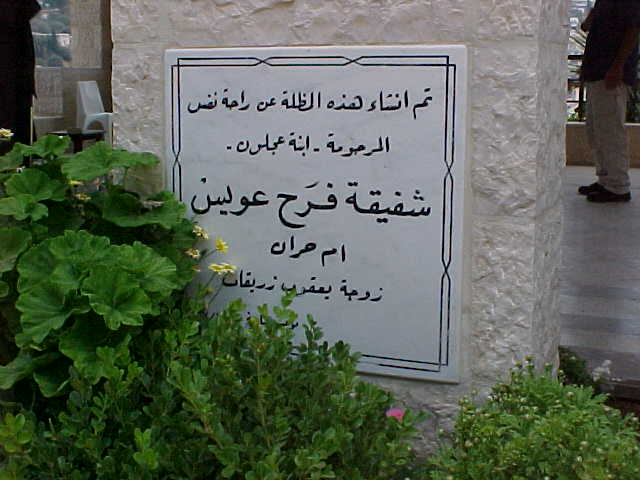 تم انشاء هذه المظلة عن راحة نفس
المرحومة - ابنة عجلون -
شفيقة فرَح عويس
ام حران
زوجة يعقوب زريقات